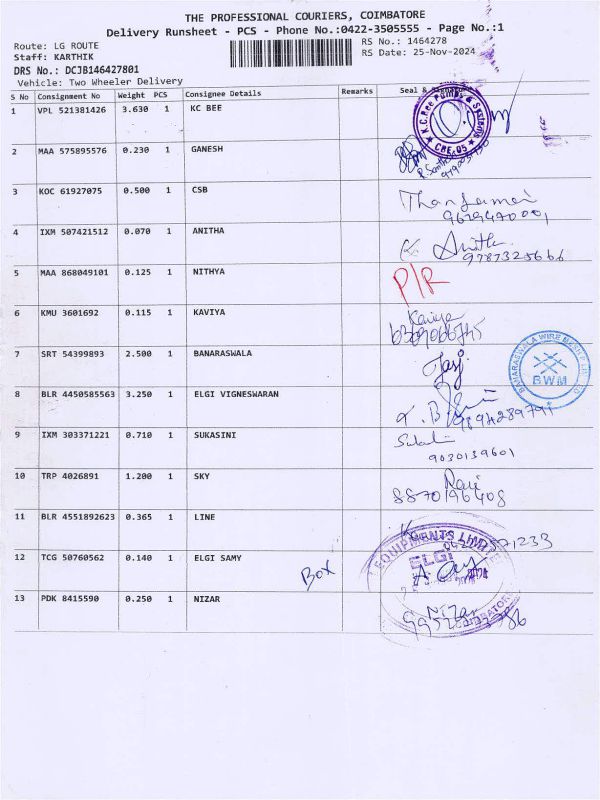 THE PROFESSIONAL COURIERS, COIMBATORE
Delivery Runsheet - PCS - Phone No.:0422-3505555 - Page No.:1
Route: LG ROUTE
Staff: KARTHIK
DRS No.: DCJB146427801
Vehicle: Two Wheeler Delivery
RS No.: 1464278
RS Date: 25-Nov-2024
S No Consignment No Weight PCS Consignee Details Remarks Seal & Signature
1 VPL 521381426 3.630 1 KC BEE
2 MAA 575895576 0.230 1 GANESH
3 KOC 61927075 0.500 1 CSB
9629470001
4 IXM 507421512 0.070 1 ANITHA Anitha
9787325666
5 MAA 868049101 0.125 1 NITHYA P/R
6 KMU 3601692 0.115 1 KAVIYA Kaviya
7 SRT 54399893 2.500 1 BANARASWALA
BWM
8 BLR 4450585563 3.250 1 ELGI VIGNESWARAN
9 IXM 303371221 0.710 1 SUKASINI
9030139601
10 TRP 4026891 1.200 1 SKY Ravi
8870196408
11 BLR 4551892623 0.365 1 LINE
12 TCG 50760562 0.140 1 ELGI SAMY BOX
EQUIPMENTS LIMITED
ELGI
13 PDK 8415590 0.250 1 NIZAR Nizar